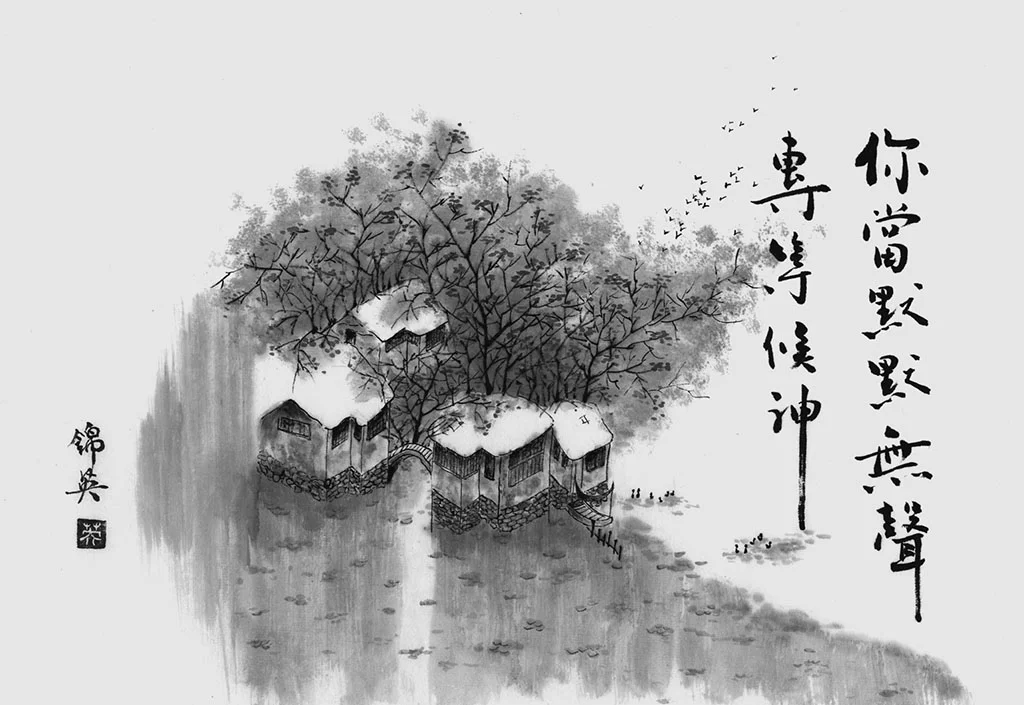 你當默默無聲
專等候神
錦英
英